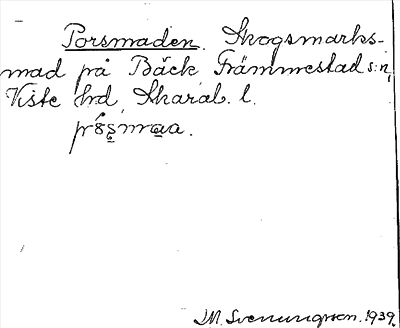 Porsmaden. Skogsmarks-
mad på Bäck Främmestad s:n,
Viste hd, Skarab. l.
M. Svenungsson. 1939.